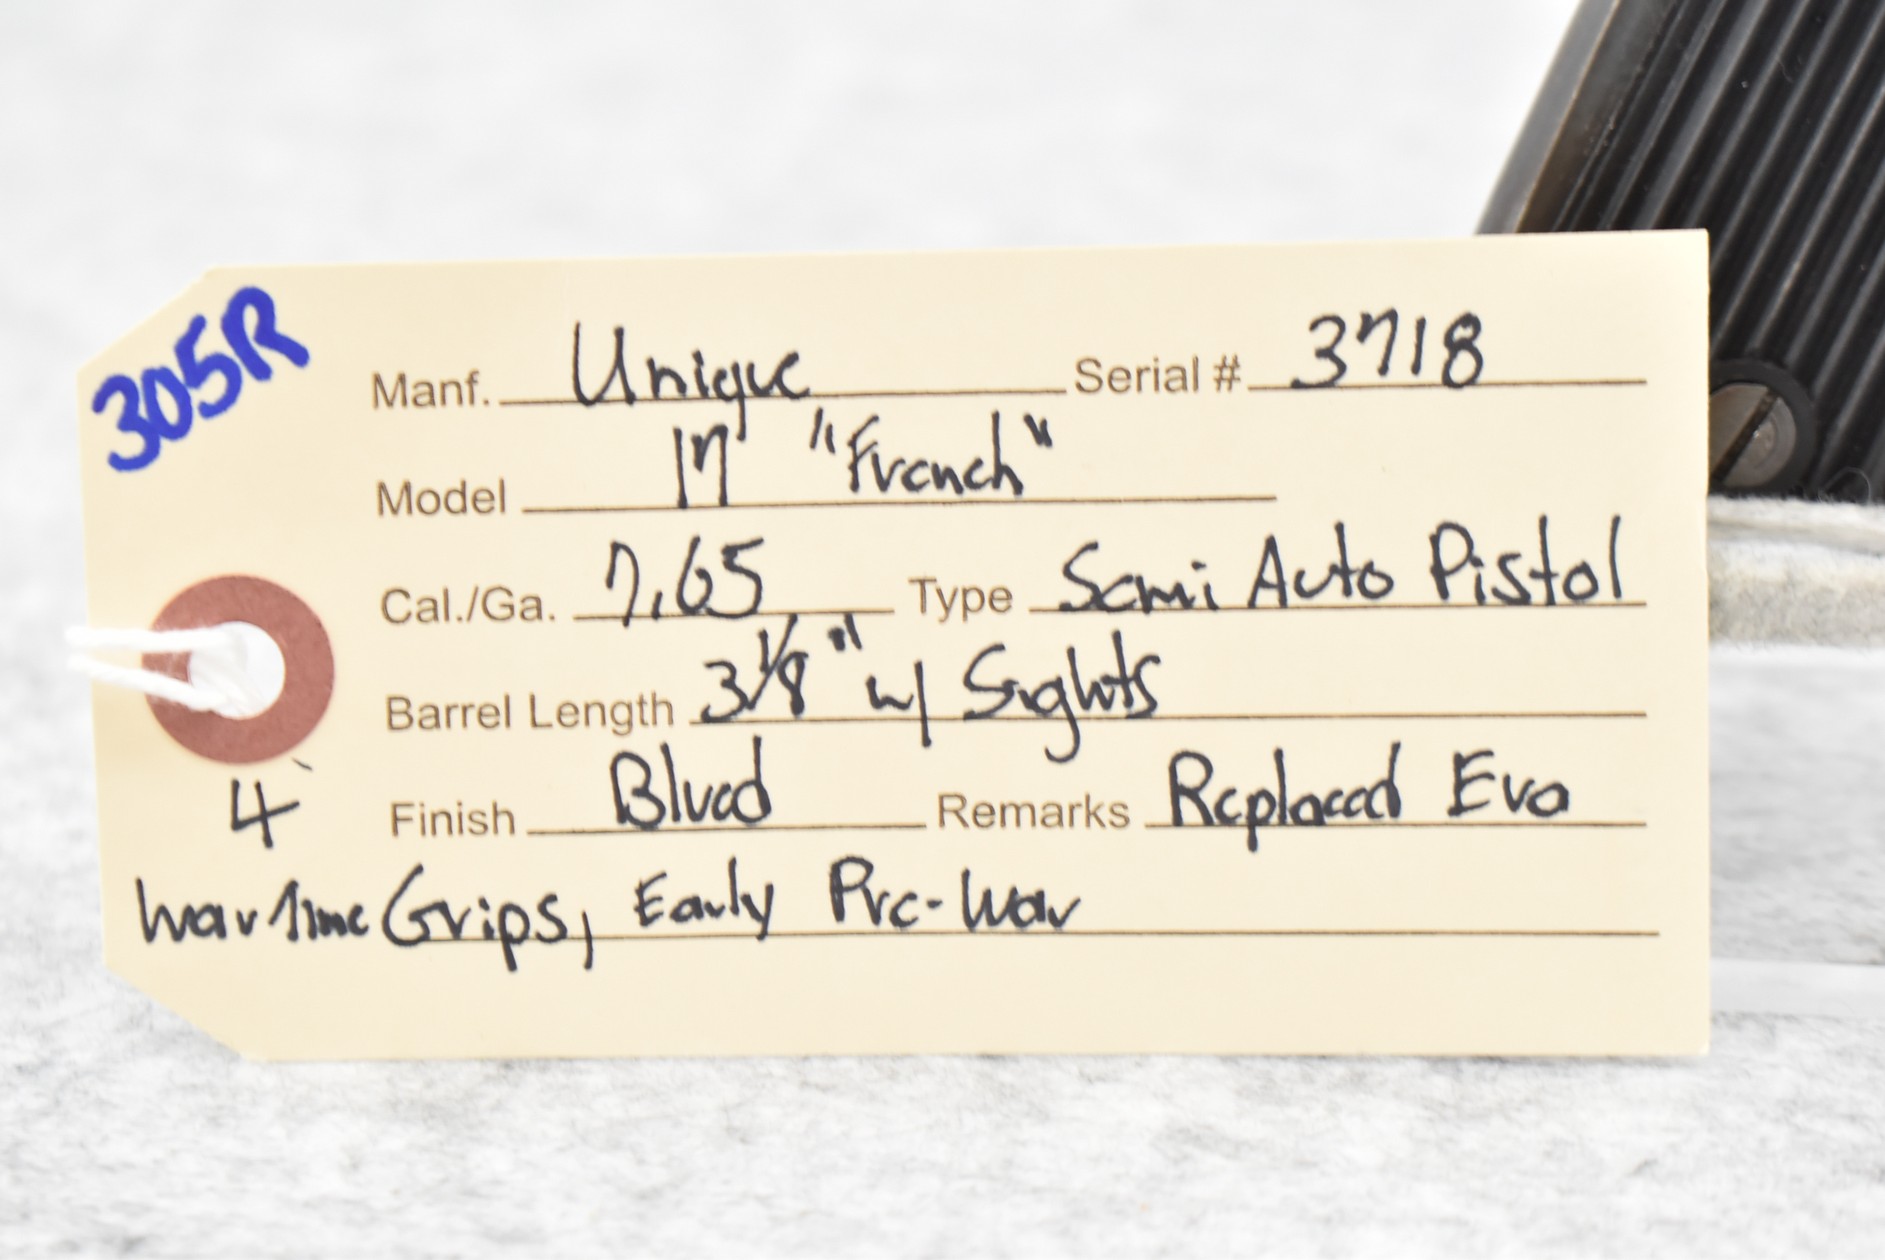 305R
Manf. Unique Serial # 3718
Model 17 "French"
Cal./Ga. 7.65 Type Semi Auto Pistol
Barrel Length 3 1/8" w/ Sights
4
Finish Blued Remarks Replaced Era
Wartime Grips, Early Pre-War